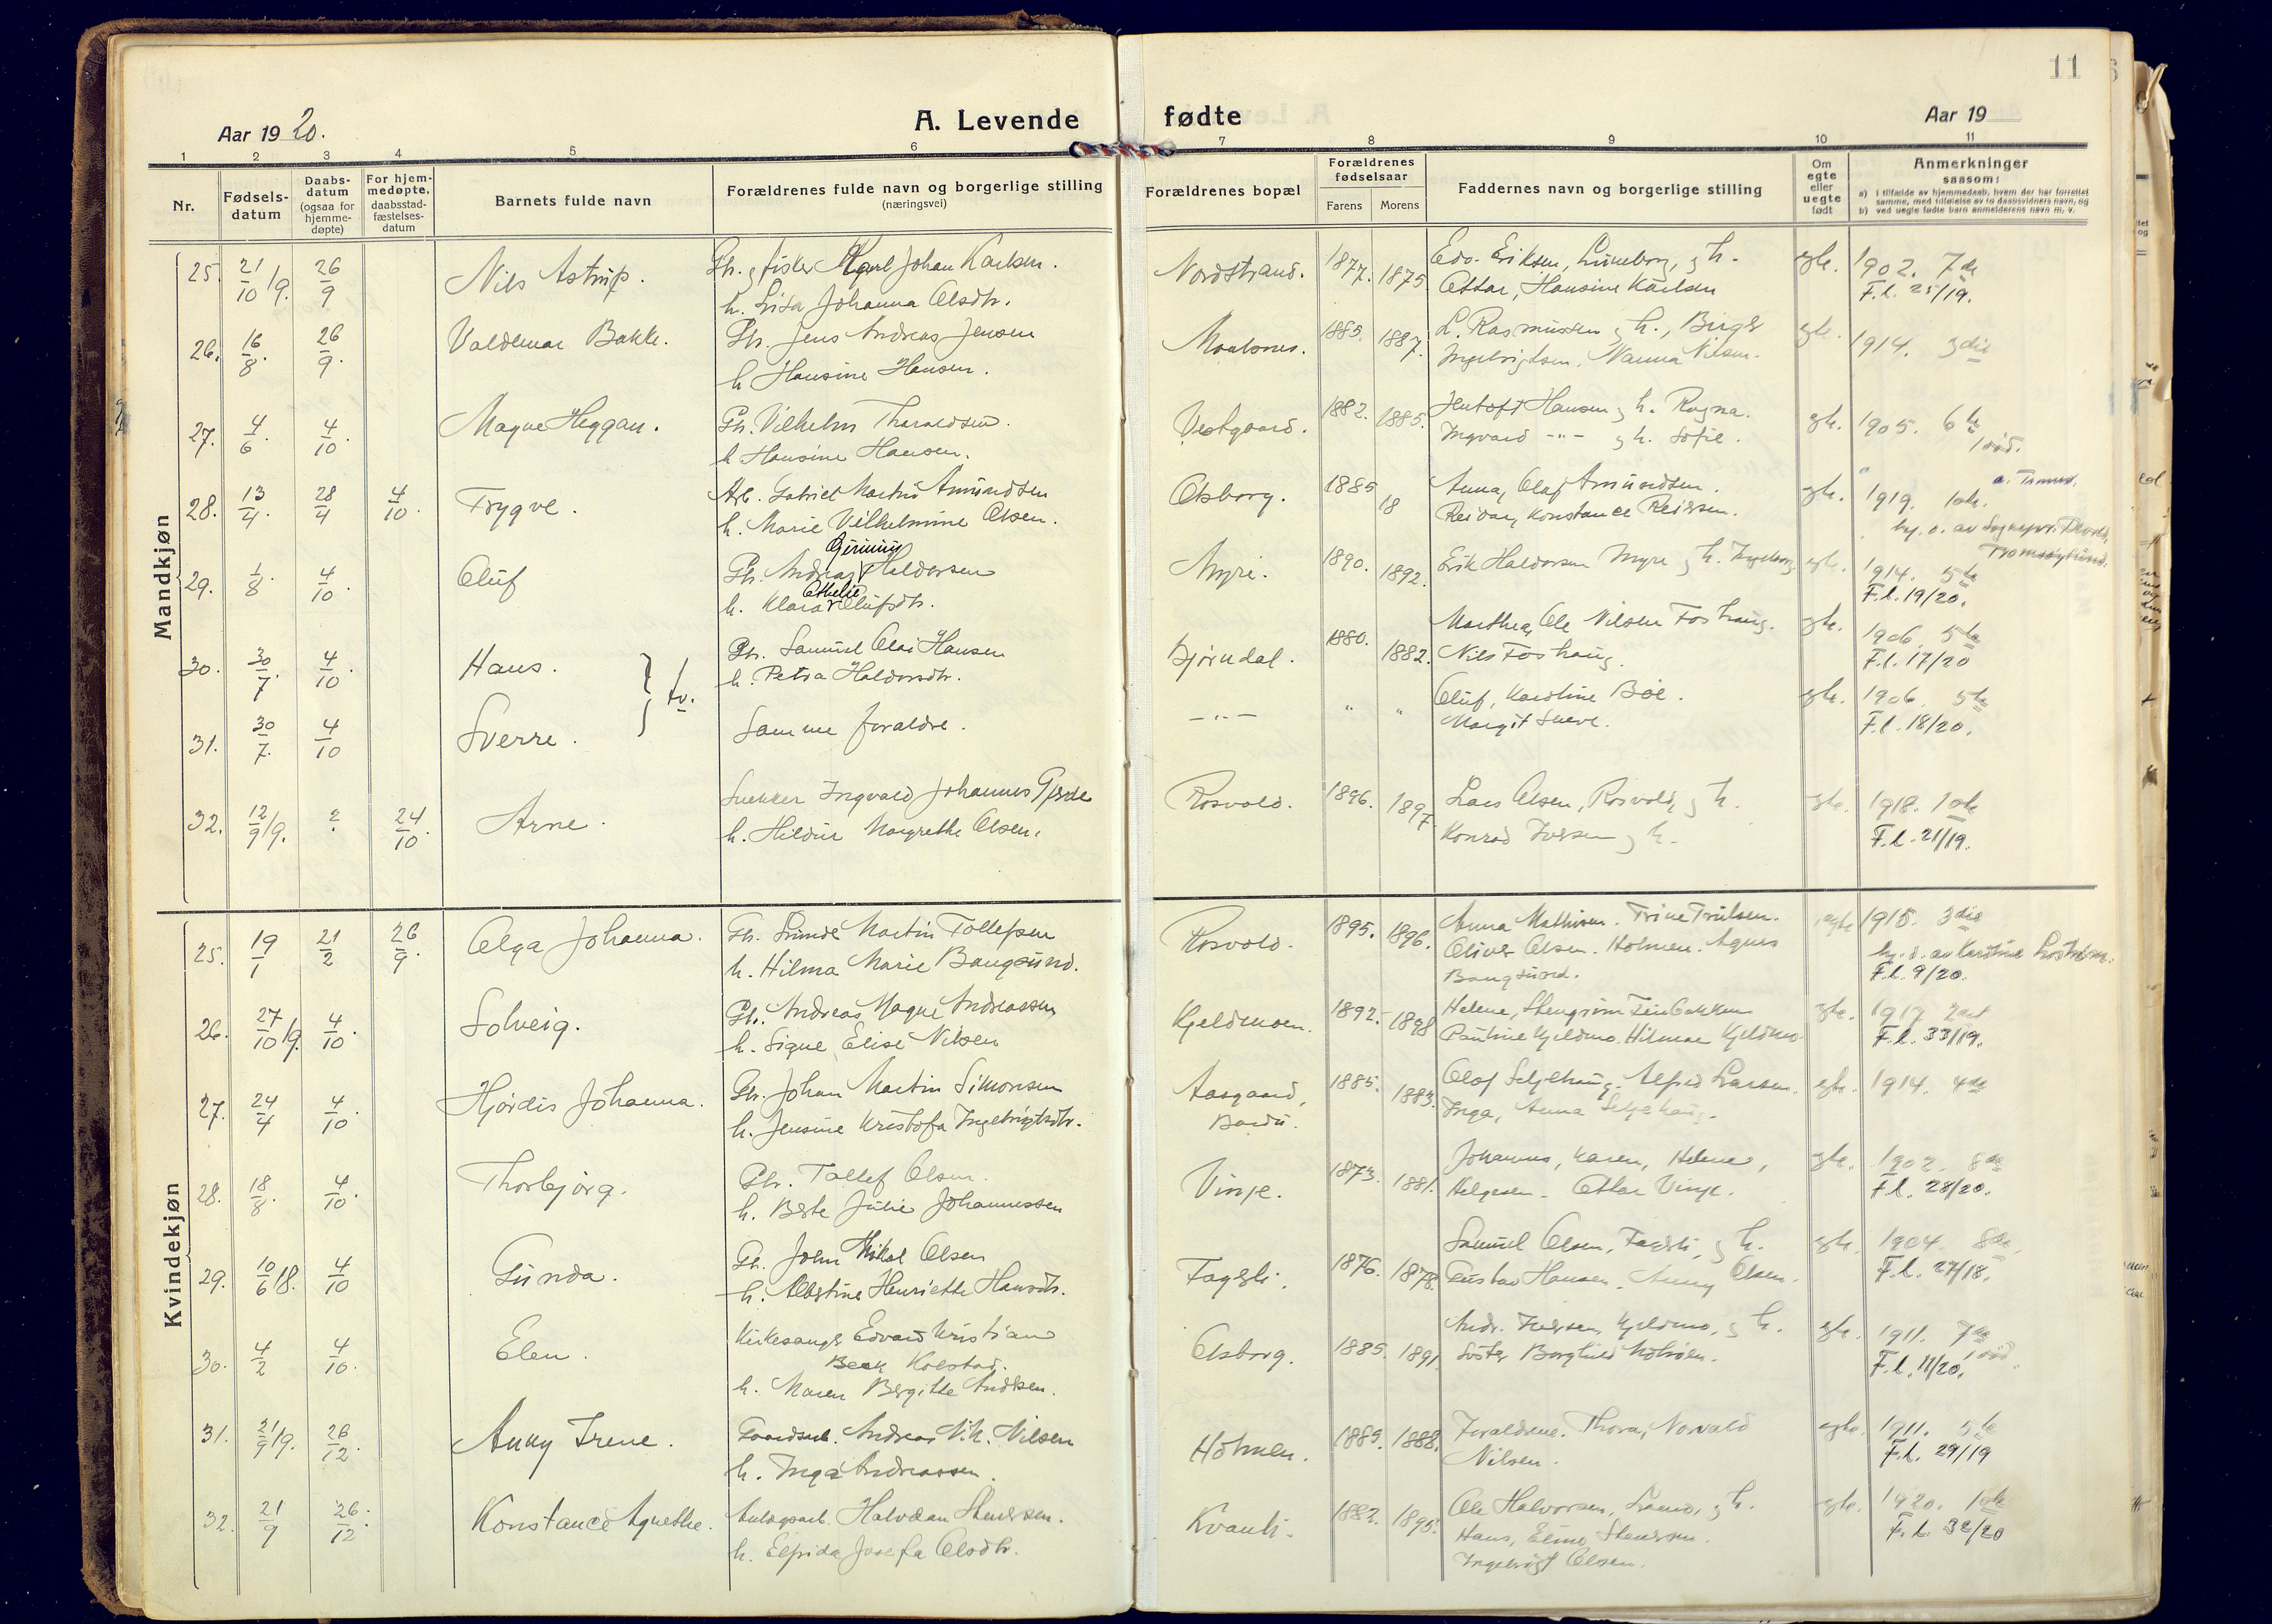 11
Aar 1920.
A. Levende fødte
Aar 19
1 2 3 4 5 6 7 8 9 10 11
Nr.
Fødsels-
datum
Daabs-
datum
(ogsaa for
hjemme-
døpte)
For hjem-
medøpte,
daabsstad-
fæstelses-
datum
Barnets fulde navn
Forældrenes fulde navn og borgerlige stilling
(næringsvei)
Forældrenes bopæl
Forældrenes
fødselsaar
Farens Morens
Faddernes navn og borgerlige stilling
Om
egte
eller
uegte
født
Anmerkninger
saasom:
a) i tilfælde av hjemmedaab, hvem der har forrettet
samme, med tilføielse av to daabsvidners navn, og
b) ved uegte fødte barn anmelderens navn m. v.
Mandkjøn
25. 21/10 19. 26/9 Nils Astrup. Gb. & fisker Karl Johan Karlsen. Nordstrand. 1877. 1875 Edv. Eriksen, Luneborg, & h. egte. 1902. 7de
h. Lisa Johanna Olsdtr. Ottar, Hansine Karlsen F.l. 25/19.
26. 16/8. 26/9. Valdemar Bakke. Gb. Jens Andreas Jensen 1885. 1887. L. Rasmussen & h., Birger egte. 1914. 3die
h. Hansine Hansen. Ingebrigtsen, Nanna Nilsen.
27. 4/6 4/10. Magne Heggan. Gb. Vilhelm Tharaldsen. Vestgaard. 1882. 1885. Hansen & h. Ragna. egte. 1905. 6te
h. Hansine Hansen. Ingvard -"- & h. Sofie. 1 død.
28. 13/4. 28/4 4/10. Trygve. Arb. Gabriel Martin Amundsen Olsborg. 1885 18 Anna, Olaf Amundsen. egte. 1919. 1ste.
h. Marie Vilhelmine Olsen. Reidar, Konstance Reiersen.
hj. d. av Sognepr.
Tromsøysund.
29. 1/8. 4/10. Oluf Gb. Andreas Haldorsen Myre. 1890. 1892. Erik Haldorsen Myre & h. Ingeborg egte. 1914. 5te
h. Klara Olufsdtr. F.l. 19/20.
30. 30/7. 4/10 Hans. } tv. Gb. Samuel Olai Hansen Bjørndal. 1880. 1882. Marthea, Ole Nilsen Foshaug. egte. 1906. 5te
h. Petra Haldorsdtr. Nils Foshaug. F.l. 17/20
31. 30/7. 4/10 Sverre. Samme foraldre. -"- " " Oluf, Karoline Bøe. egte. 1906. 5te
Margit F.l. 18/20.
32. 12/9 19. ? 24/10. Arne. Snekker Ingvald Johannes Gjerde Rosvold. 1896. 1897 Lars Olsen, Rosvold, & h. egte. 1918. 1ste
h. Hildur Margrethe Olsen. Konrad Iversen & h. F.l. 21/19.
Kvindekjøn
25. 19/1 21/2 26/9. Olga Johanna. Gb. Martin Tollefsen Rosvold. 1895. 1896. Anna Mathisen. Trine Trulsen. egte 1915. 3die
h. Hilma Marie Bangsund. Oliver Olsen. Holmen. Agnes hj. d. av Karoline
Bangsund. F.l. 9/20.
26. 27/10 19. 4/10. Solveig. Gb. Andreas Magne Andreassen Kjeldmoen. 1892. 1898 Helene, egte. 1917 2det
h. Signe Elise Nilsen Pauline Kjeldmo. Hilmar Kjeldmo. F.l. 33/19.
27. 24/4 4/10. Hjørdis Johanna. Gb. Johan Martin Simonsen Aasgaard, 1885. 1883. Olaf Seljehaug. Alfred Larsen. egte. 1914. 4de
h. Jensine Kristofa Ingebrigtsdtr. Bardu. Inga, Anna Seljehaug.
28. 18/8. 4/10. Thorbjørg. Gb. Tollef Olsen. Vinje. 1873. 1881. Johannes, Karen, Helene, egte. 1902. 8de
h. Berte Julie Johannessen Helgesen. Ottar Vinje. F.l. 28/20.
29. 10/6 18. 4/10 Gunda. Gb. John Mikal Olsen Fagerli. 1876. 1878. Samuel Olsen, Fagerli, & h. egte. 1904. 8de.
h. Albertine Henriette Hansdtr. Gustav Hansen. Anny Olsen. F.l. 27/18.
30. 4/2 4/10. Elen. Kirkesanger Edvard Kristian Olsborg. 1885. 1891 Andr. Iversen Kjeldmo, & h. egte. 1911. 7de
Beck Kolstad. Søster Borghild F.l. 11/20. 1 død.
h. Maren Bergitte Andersen.
31. 21/9 19. 26/12. Anny Irene. Gaardsarb. Andreas N.K. Nilsen Holmen. 1889. 1888. Foraldrene. Thora, Norvald egte. 1911. 5te
h. Inga Andreassen. Nilsen. F.l. 29/19
32. 21/9 26/12. Konstance Agnethe. Anlægsarb. Halvdan Stenersen. Kvanli. 1882. 1895. Ole Halvorsen, & h. egte. 1920. 1ste
h. Elfrida Josefa Olsdtr. Hans, Eline Stenersen. F.l. 32/20
Ingebrigt Olsen.